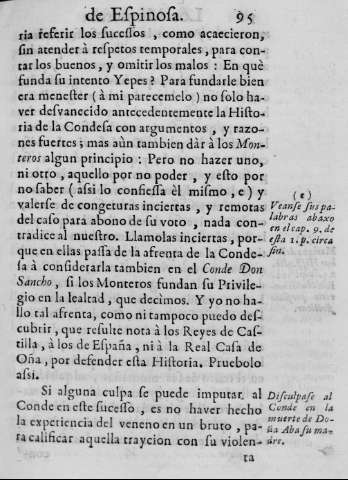 de Espinosa. 95
ria referir los sucessos, como acaecieron,
sin atender à respetos temporales, para con-
tar los buenos, y omitir los malos: En què
funda su intento Yepes? Para fundarle bien
era menester (à mi parecemelo) no solo ha-
ver desvanecido antecedentemente la Histo-
ria de la Condesa con argumentos, y razo-
nes fuertes; mas aùn tambien dàr à los Mon-
teros algun principio: Pero no hazer uno,
ni otro, aquello por no poder, y esto por
no saber (assi lo confiessa èl mismo, e) y
valerse de congeturas inciertas, y remotas
del caso para abono de su voto, nada con-
tradice al nuestro. Llamolas inciertas, por-
que en ellas passa de la afrenta de la Conde-
sa à considerarla tambien en el Conde Don
Sancho, si los Monteros fundan su Privile-
gio en la lealtad, que decimos. Y yo no ha-
llo tal afrenta, como ni tampoco puedo des-
cubrir, que resulte nota à los Reyes de Cas-
tilla, à los de España, ni à la Real Casa de
Oña, por defender esta Historia. Pruebolo
assi.
Si alguna culpa se puede imputar al
Conde en este sucesso, es no haver hecho
la experiencia del veneno en un bruto, pa-
ra calificar aquella traycion con su violen-
ta
(e)
Veanse sus pa-
labras abaxo
en el cap. 9. de
esta 1. p. circa
fin.
Disculpase al
Conde en la
muerte de Do-
ña Aba su ma-
dre.